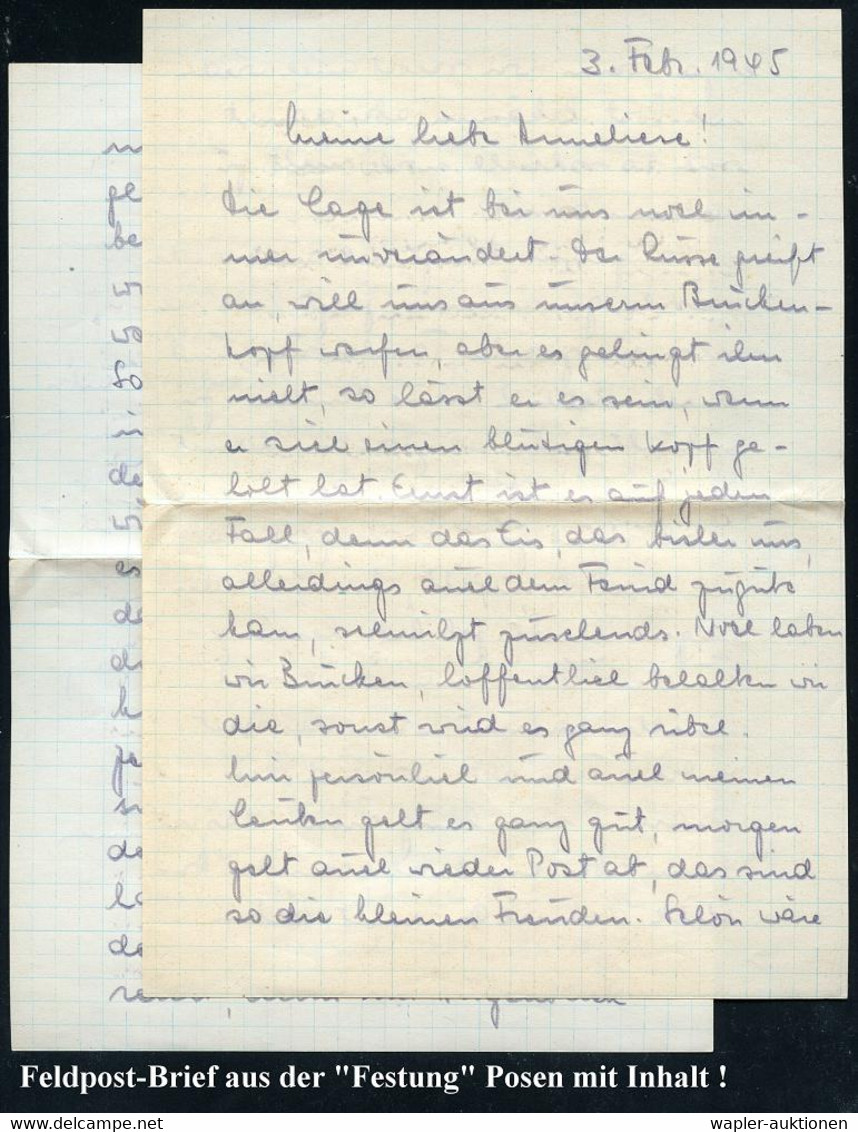 3. Febr. 1945
Meine liebe Anneliese!
Die Lage ist bei uns noch im-
mer unverändert. Der Russe greift
an, will uns aus unserm Brücken-
kopf werfen, aber es gelingt ihm
nicht, so lässt er es sein, wenn
er sich einen blutigen Kopf ge-
holt hat. Ernst ist es auf jeden
Fall, denn das Eis, das bisher uns,
allerdings auch dem Feind zugute
kam, schmilzt zusehends. Noch haben
wir Brücken, hoffentlich behalten wir
die, sonst wird es ganz übel.
Mir persönlich und auch meinen
Leuten geht es ganz gut, morgen
geht auch wieder Post ab, das sind
so die kleinen Freuden. Schön wäre
Feldpost-Brief aus der "Festung" Posen mit Inhalt !
wapler-auktionen